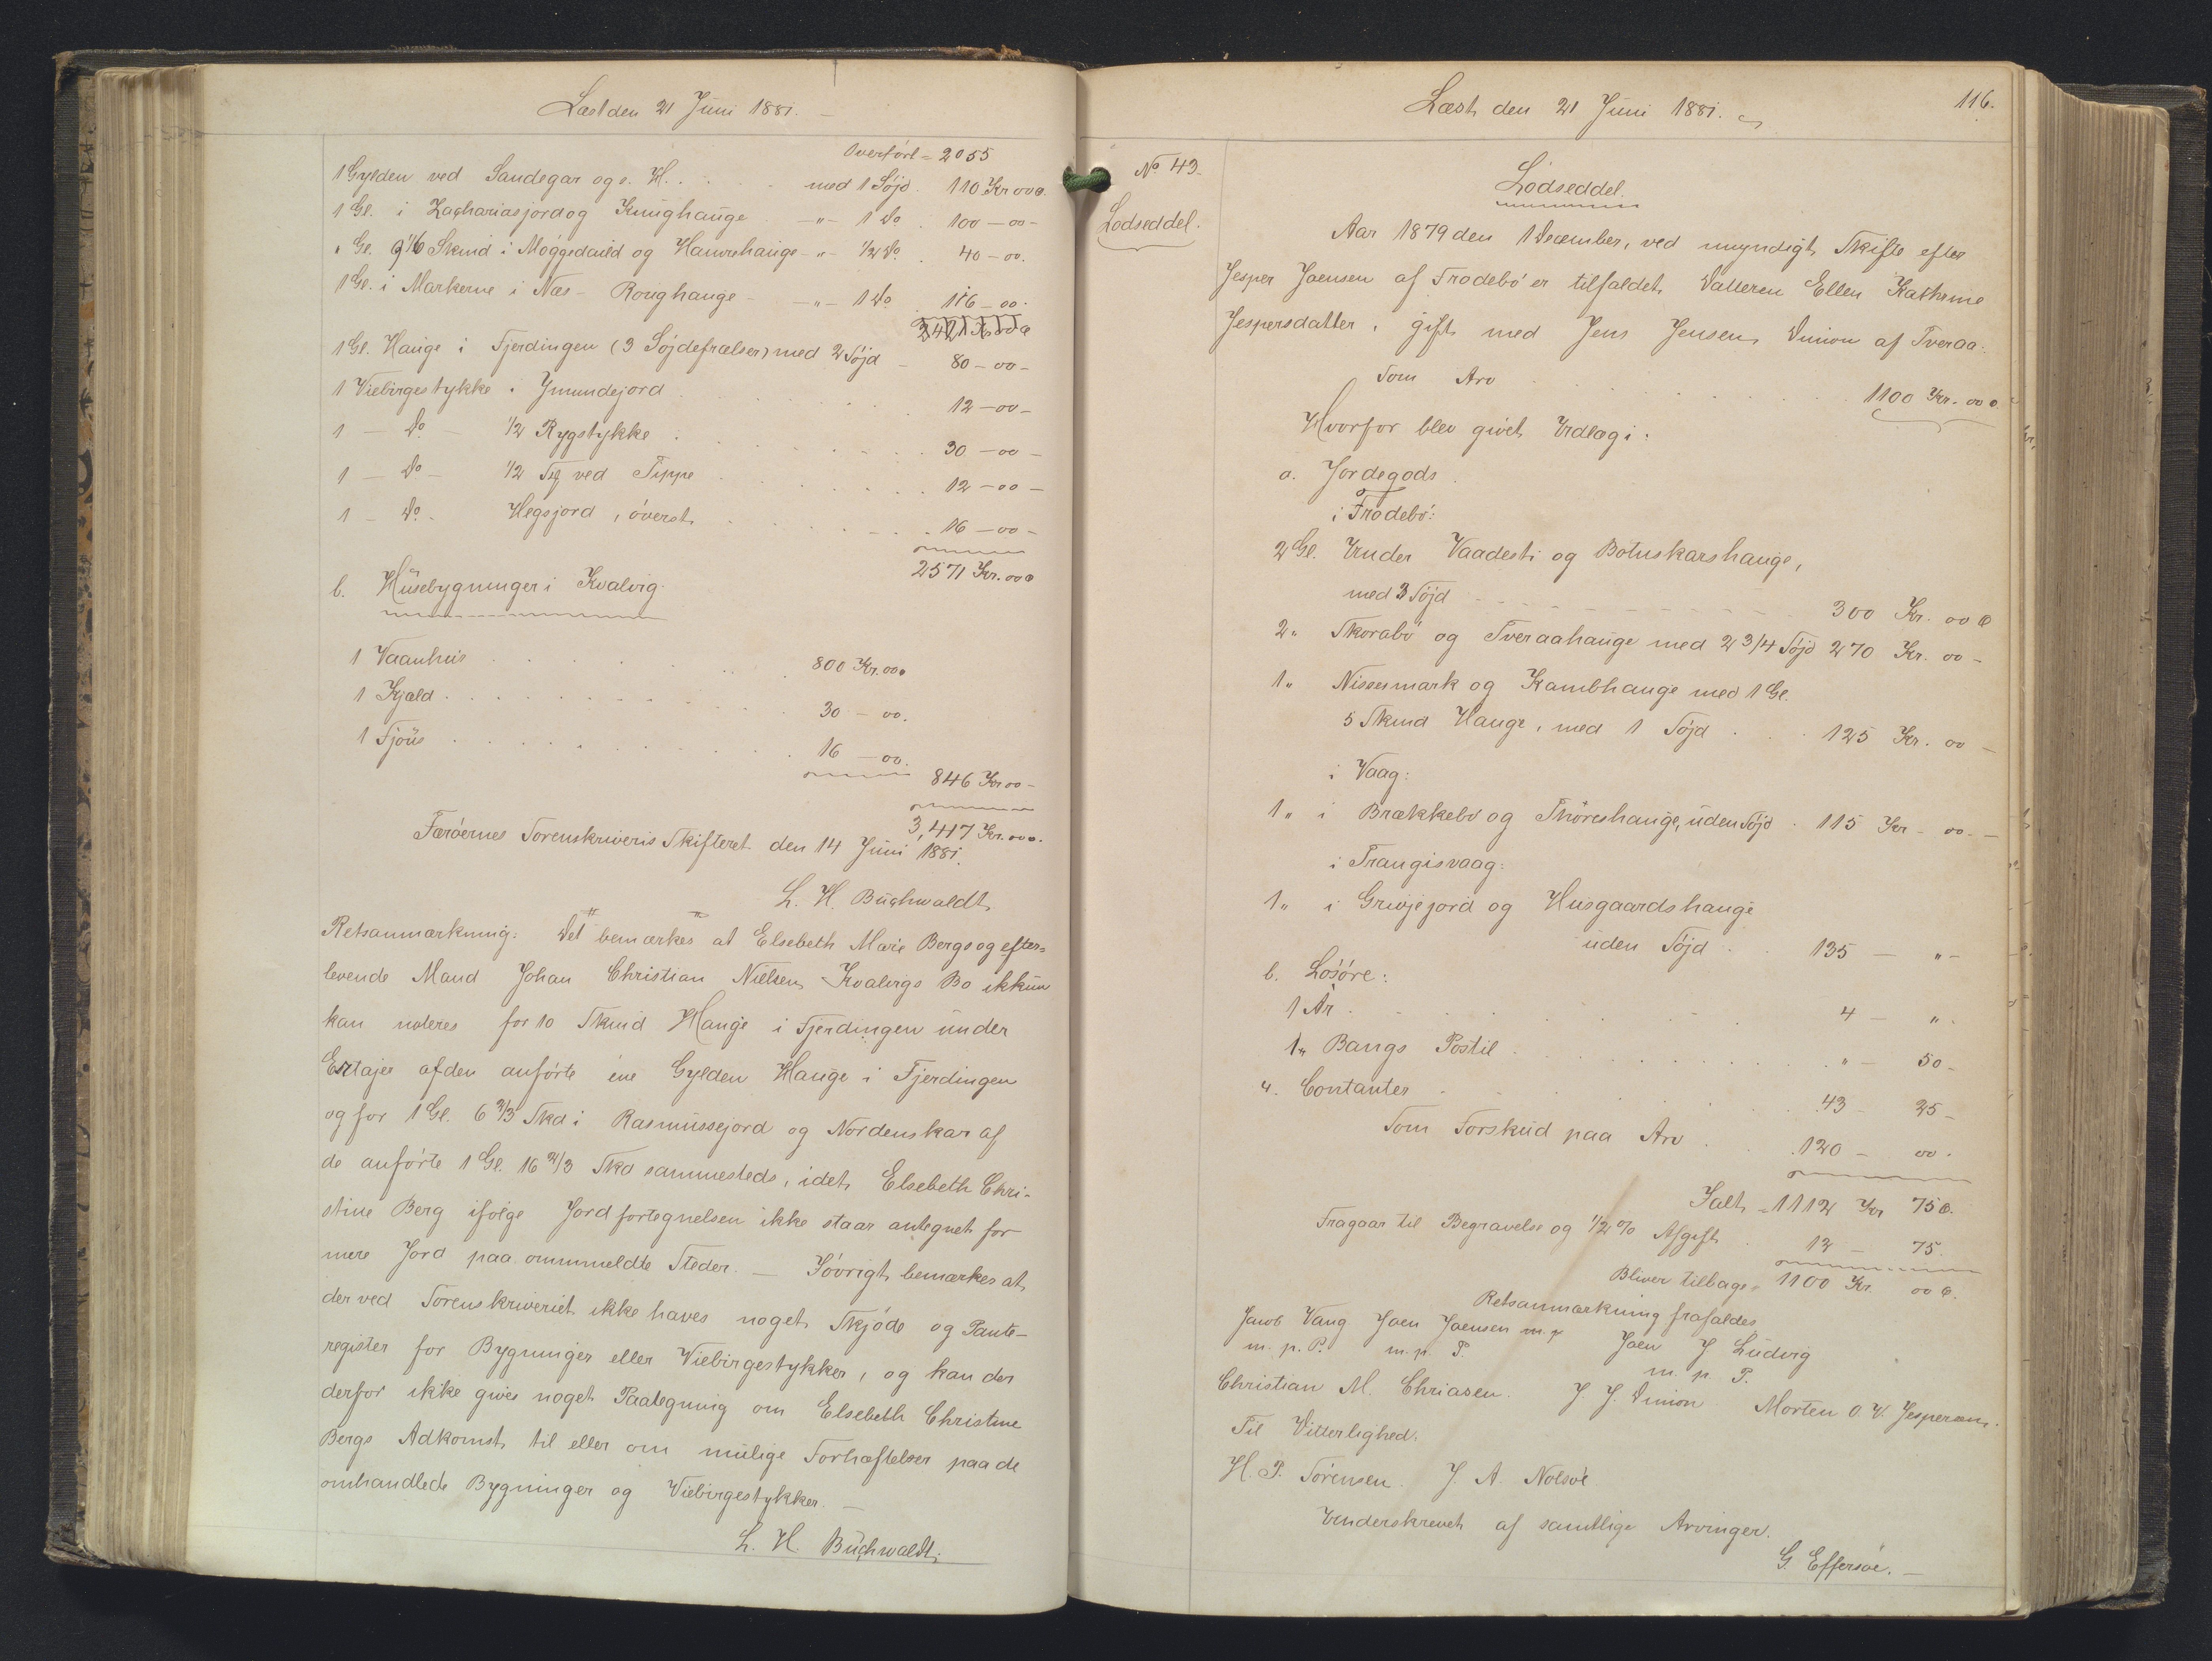 Læst den 21 Juni 1881. –
Overført = 2055
1 Gylden ved Sandegar og s. H. . . . . med 1 Søjd. 110 Kr 00 Ø
1 Gl. i Zachariasjord og Knughauge . –"– 1 Do. 100 – 00 –
" Gl. 9 1/6 Skind i Møggedauld og Hamrehauge –"– 1/2 Do. 40 – 00.
1 Gl. i Markerne i Næs – Roughauge – –"– 1 Do 116 – 00.
2421 Kr 00 Ø
1 Gl. Hauge i Fjerdingen (3 Søjdefrælser) med 2 Søjd – 80 – 00 –
1 Viebirgestykke i Ymundejord . . . . . . . 12 – 00 –
1 – Do – 1/2 Rygstykke . . . . . . . 30 – 00 –
1 – Do – 1/2 Teg ved Tippe . . . . . . . 12 – 00 –
1 – Do. – Hegsjord, øverst . . . . . . 16 – 00 –
2571 Kr. 00 Ø
b. Husebygninger i Kvalvig.
1 Vaanhus . . . . . . . . 800 Kr. 00 Ø
1 Kjæld . . . . . . . . . 30 – 00.
1 Fjøus . . . . . . . . . . 16 – 00.
846 Kr 00 –
3,417 Kr. 00 Ø.
Færøernes Sorenskriveris Skifteret den 14 Juni 1881.
L. H. Buchwaldt
Retsanmærkning: Det bemærkes at Elsebeth Marie Bergs og efter=
levende Mand Johan Christian Nielsen Kvalvigs Bo ikkun
kan noteres for 10 Skind Hauge i Fjerdingen under
Ertajer af den anførte ene Gylden Hauge i Fjerdingen
og for 1 Gl. 6 2/3 Skd i Rasmussejord og Nordenskar af
de anførte 1 Gl. 16 2/3 Skd sammesteds, idet Elsebeth Chri-
stine Berg ifølge Jordfortegnelsen ikke staar antegnet for
mere Jord paa ommeldte Steder. – Iøvrigt bemærkes at
der ved Sorenskriveriet ikke haves noget Skjøde og Pante-
register for Bygninger eller Viebirgestykker, og kan der
derfor ikke gives noget Paategning om Elsebeth Christine
Bergs Adkomst til eller om mulige Forhæftelser paa de
omhandlede Bygninger og Viebirgestykker. –
L. H. Buchwaldt.
Læst den 21 Juni 1881.
116.
No 43.
Lodseddel.
Lodseddel.
Aar 1879 den 1 December, ved umyndigt Skifte efter
Jesper Joensen af Frodebø er tilfaldet Datteren Ellen Kathrine
Jespersdatter, gift med Jens Jensen Dimon af Tveraa:
Som Arv . . . . . . . 1100 Kr. 00 Ø
Hvorfor blev givet Udlæg i:
a. Jordegods
i Frodebø:
2 Gl. Under Vaadesti og Botuskarshauge,
med 3 Søjd – – – – – – – – 300 Kr. 00 Ø
2 " Skorabø og Tveraahauge med 2 3/4 Søjd 270 Kr. 00 –
1 " Nissesmark og Kambhauge med 1 Gl.
5 Skind Hauge, med 1 Søjd . . . 125 Kr. 00 –
i Vaag:
1 " i Brækkebø og Thoreshauge, uden Søjd . 115 Kr – 00 –
i Trangisvaag:
1 " i Grivjejord og Husgaardshauge
uden Søjd . . 135 – " –
b. Løsøre:
1 Ar . . . . . . . . . 4 – " .
1 " Bangs Postil . . . . . . . . " – 50 –
4. Contanter . . . . . . . . 43 – 25 –
Som Forskud paa Arv . . 120 – 00.
Ialt = 1112 Kr 75 Ø.
Fragaar til Begravelse og 1/2 % Afgift . 12 – 75.
Bliver tilbage = 1100 Kr. 00 Ø.
Retsanmærkning frafaldes
Jacob Vang Joen Joensen m. p Joen J Ludvig
m. p. P. m. p. P. m. p. P.
Christian M. Chriasen. J. J. Dimon Morten O. V. Jespersen.
Til Vitterlighed:
H. P. Sørensen. J. A. Nolsøe
Underskrevet af samtlige Arvinger.
G. Effersøe. –